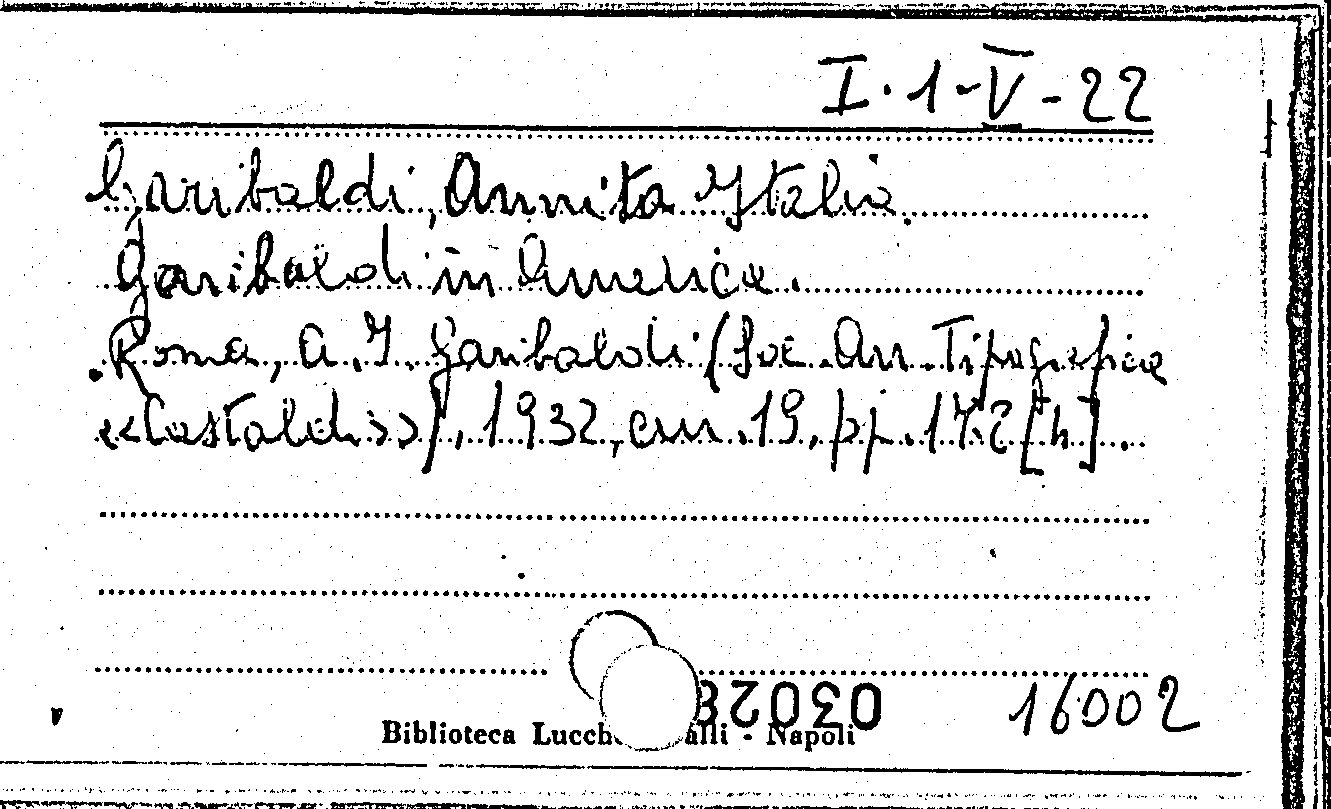 I. 1-V-22
Garibaldi, Annita Italia.
Garibaldi in America.
Roma, A. I. Garibaldi (Soc. An. Tipografica
«Castaldi»), 1932, cm. 19, pp. 172 [4].
16002
Biblioteca Lucch alli - Napoli